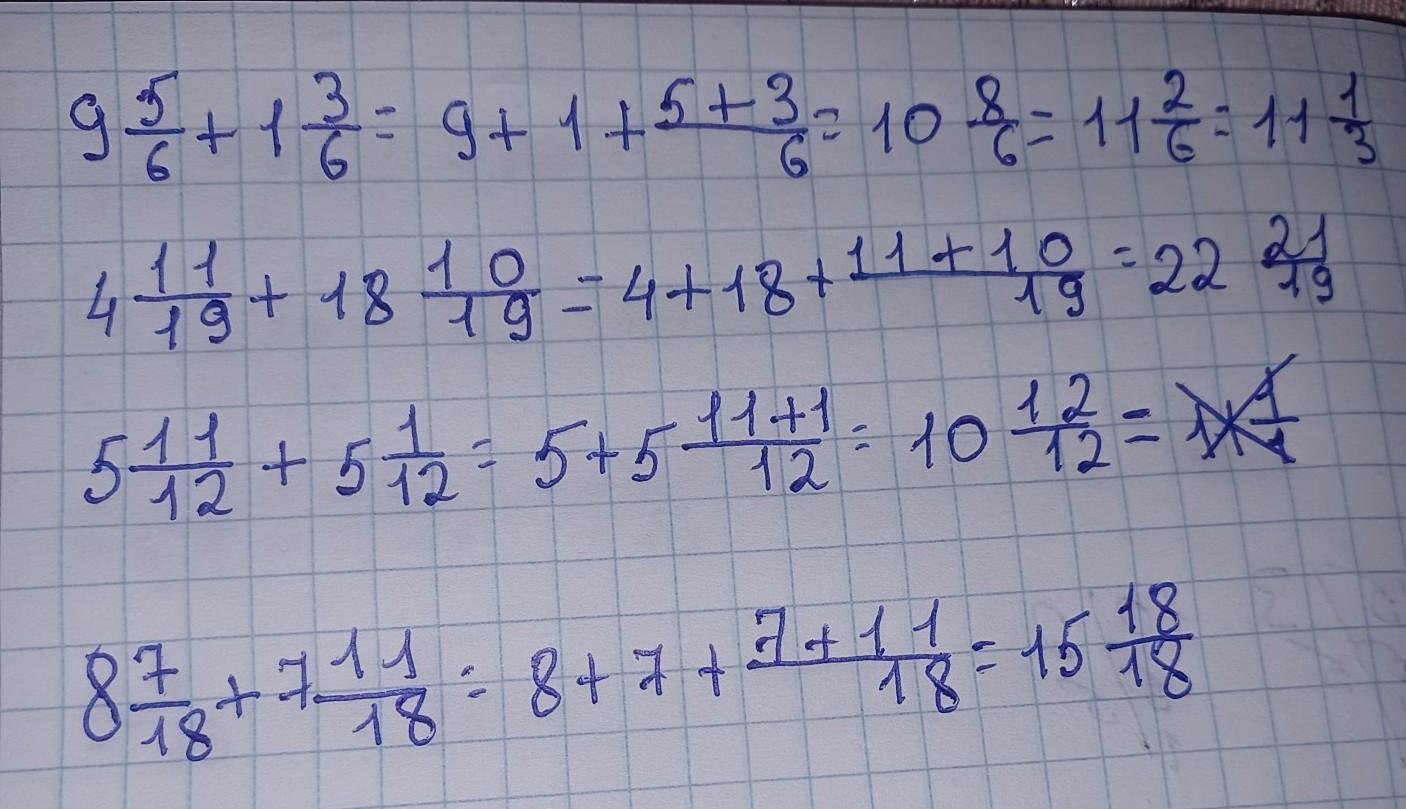 9 5/6 + 1 3/6 = 9 + 1 + (5 + 3)/6 = 10 8/6 = 11 2/6 = 11 1/3
4 11/19 + 18 10/19 = 4 + 18 + (11 + 10)/19 = 22 21/19
5 11/12 + 5 1/12 = 5 + 5 (11 + 1)/12 = 10 12/12 =
8 7/18 + 7 11/18 = 8 + 7 + (7 + 11)/18 = 15 18/18